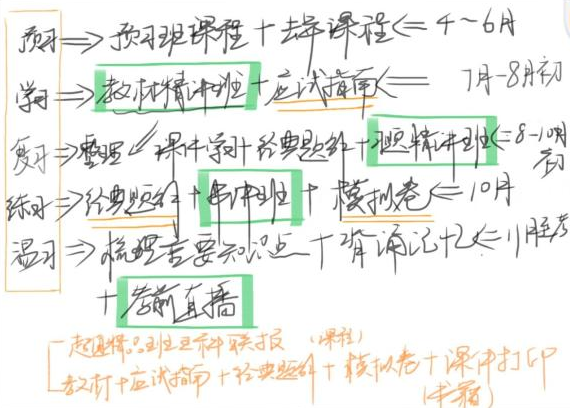 预习⇒预习班课程+去年课程⇐4~6月
学习⇒教材精讲班+应试指南⇐7月-8月初
复习⇒整理课件学习+经典题解+习题精讲班⇐8-10月初
练习⇒经典题解+串讲班+模拟卷⇐10月
温习⇒梳理主要知识点+背诵记忆⇐11月
+考前直播
班主科联报(课程)
教材+应试指南+经典题解+模拟卷+课件打印